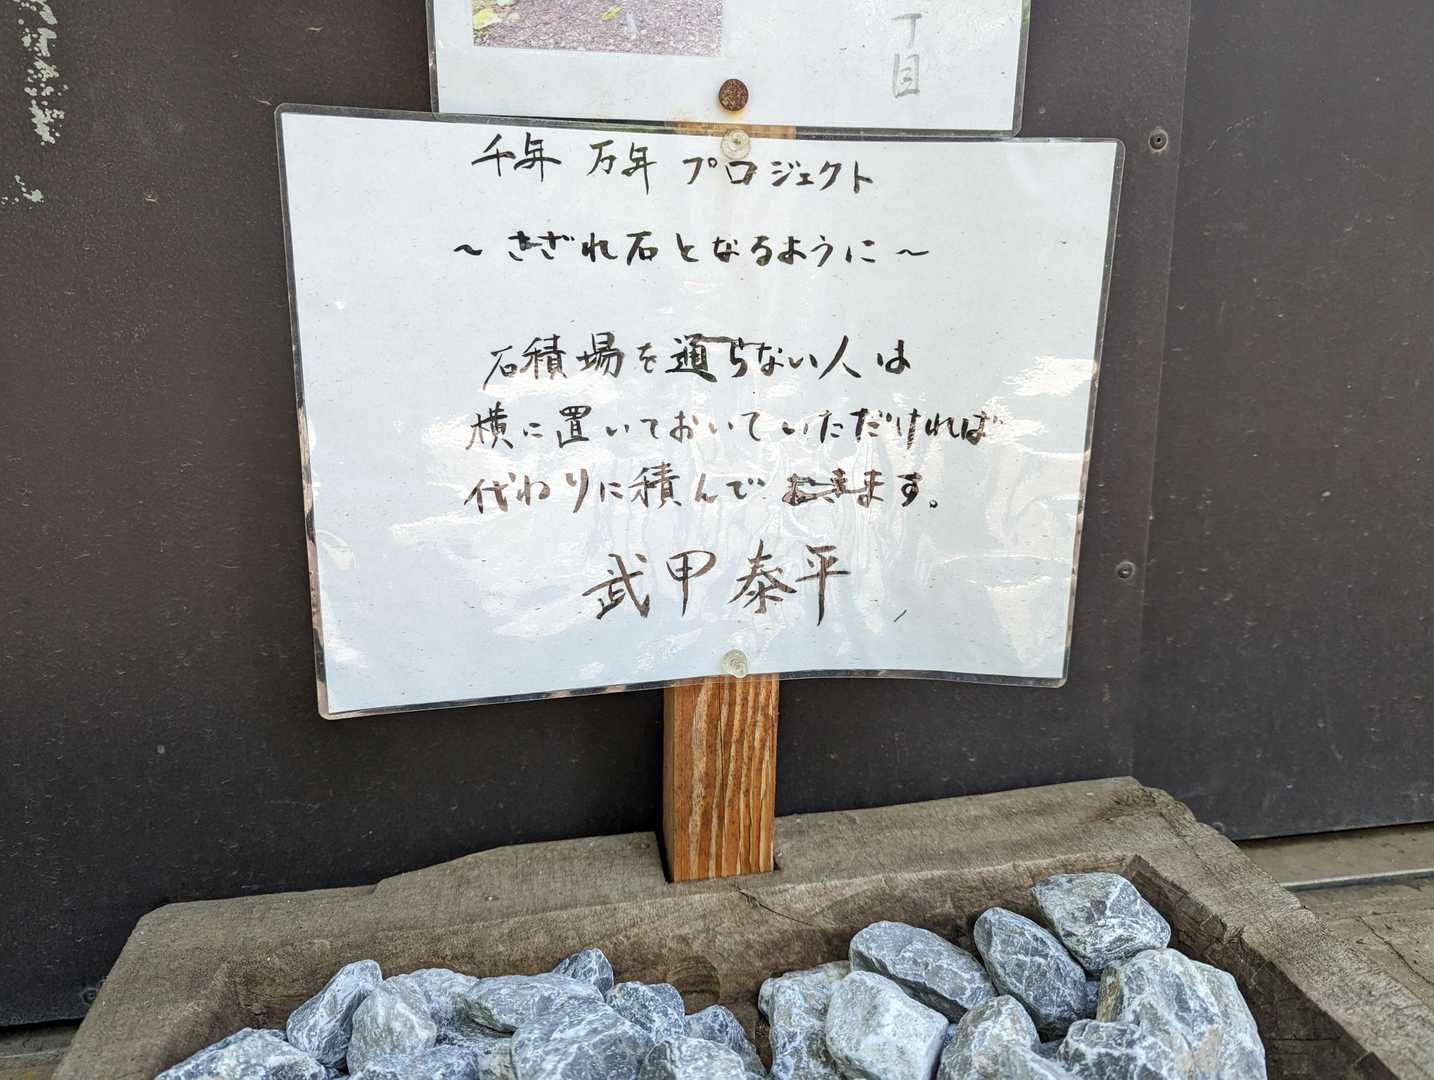 丁目
千年 万年 プロジェクト
～さざれ石となるように～
石積場を通らない人は
横に置いておいていただければ
代わりに積んでおきます。
武甲泰平